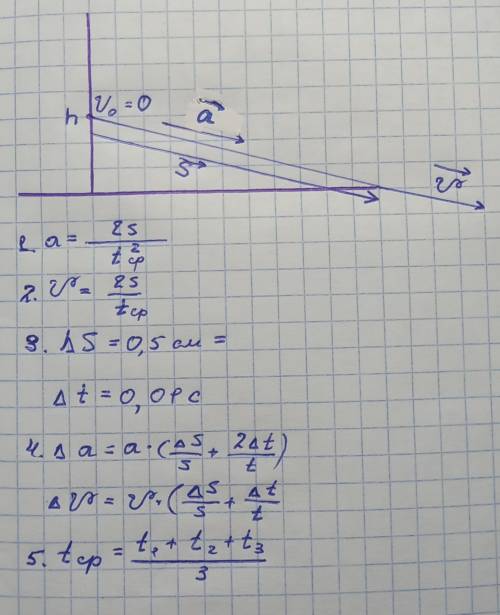 h V₀ = 0 a⃗
S⃗ v⃗
1. a = 2s / t²ср
2. v = 2s / tср
3. ΔS = 0,5 см =
Δt = 0,01 с
4. Δa = a · (ΔS/S + 2Δt/t)
Δv = v · (ΔS/S + Δt/t
5. tср = (t₁ + t₂ + t₃) / 3